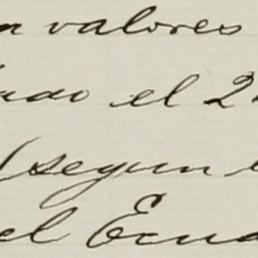 valores
el 2
(segun
el Ecua